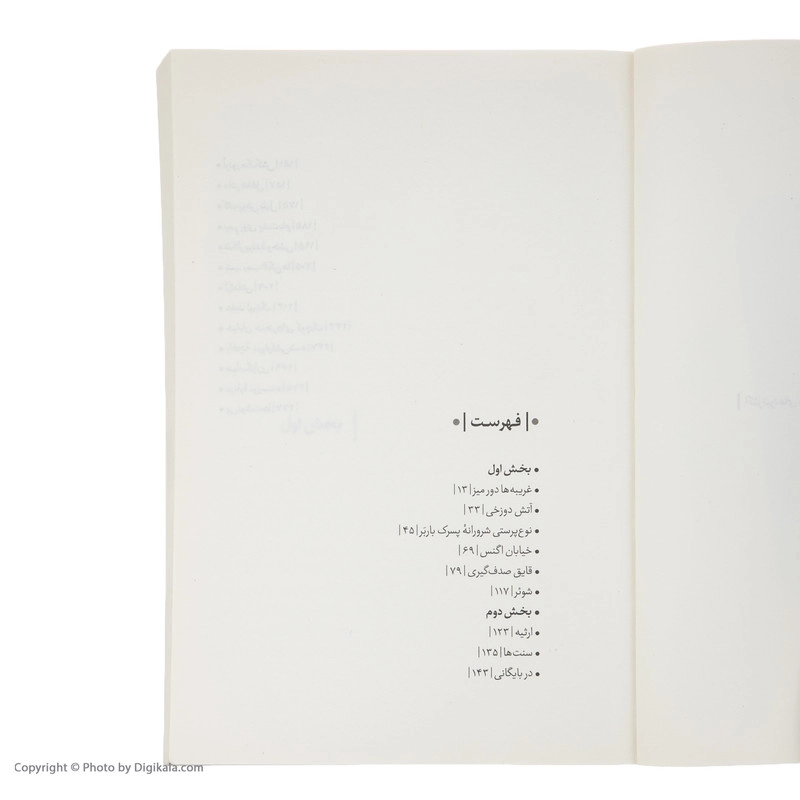 • | فهرست | •
• بخش اول
• غریبه‌ها دور میز | ۱۳ |
• آتش دوزخی | ۳۳ |
• نوع‌پرستی شرورانهٔ پسرک باربَر | ۴۵ |
• خیابان اگنس | ۶۹ |
• قایق صدف‌گیری | ۷۹ |
• شوئر | ۱۱۷ |
• بخش دوم
• ارثیه | ۱۲۳ |
• سنت‌ها | ۱۳۵ |
• در بایگانی | ۱۴۳ |
Copyright © Photo by Digikala.com